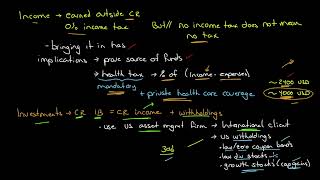 Income → earned outside CR
0% income tax
But// no income tax does not mean no tax
- bringing it in has implications → prove source of funds
↳ health tax → % of (Income - expenses)
mandatory
+ private health care coverage
~ 2400 USD
~ 4000 USD
Investments → CR IB = CR income + withholdings
- use US asset mgmt firm → International client
→ US withholdings
- low/zero coupon bonds
- low div stocks
- growth stocks (cap gains)